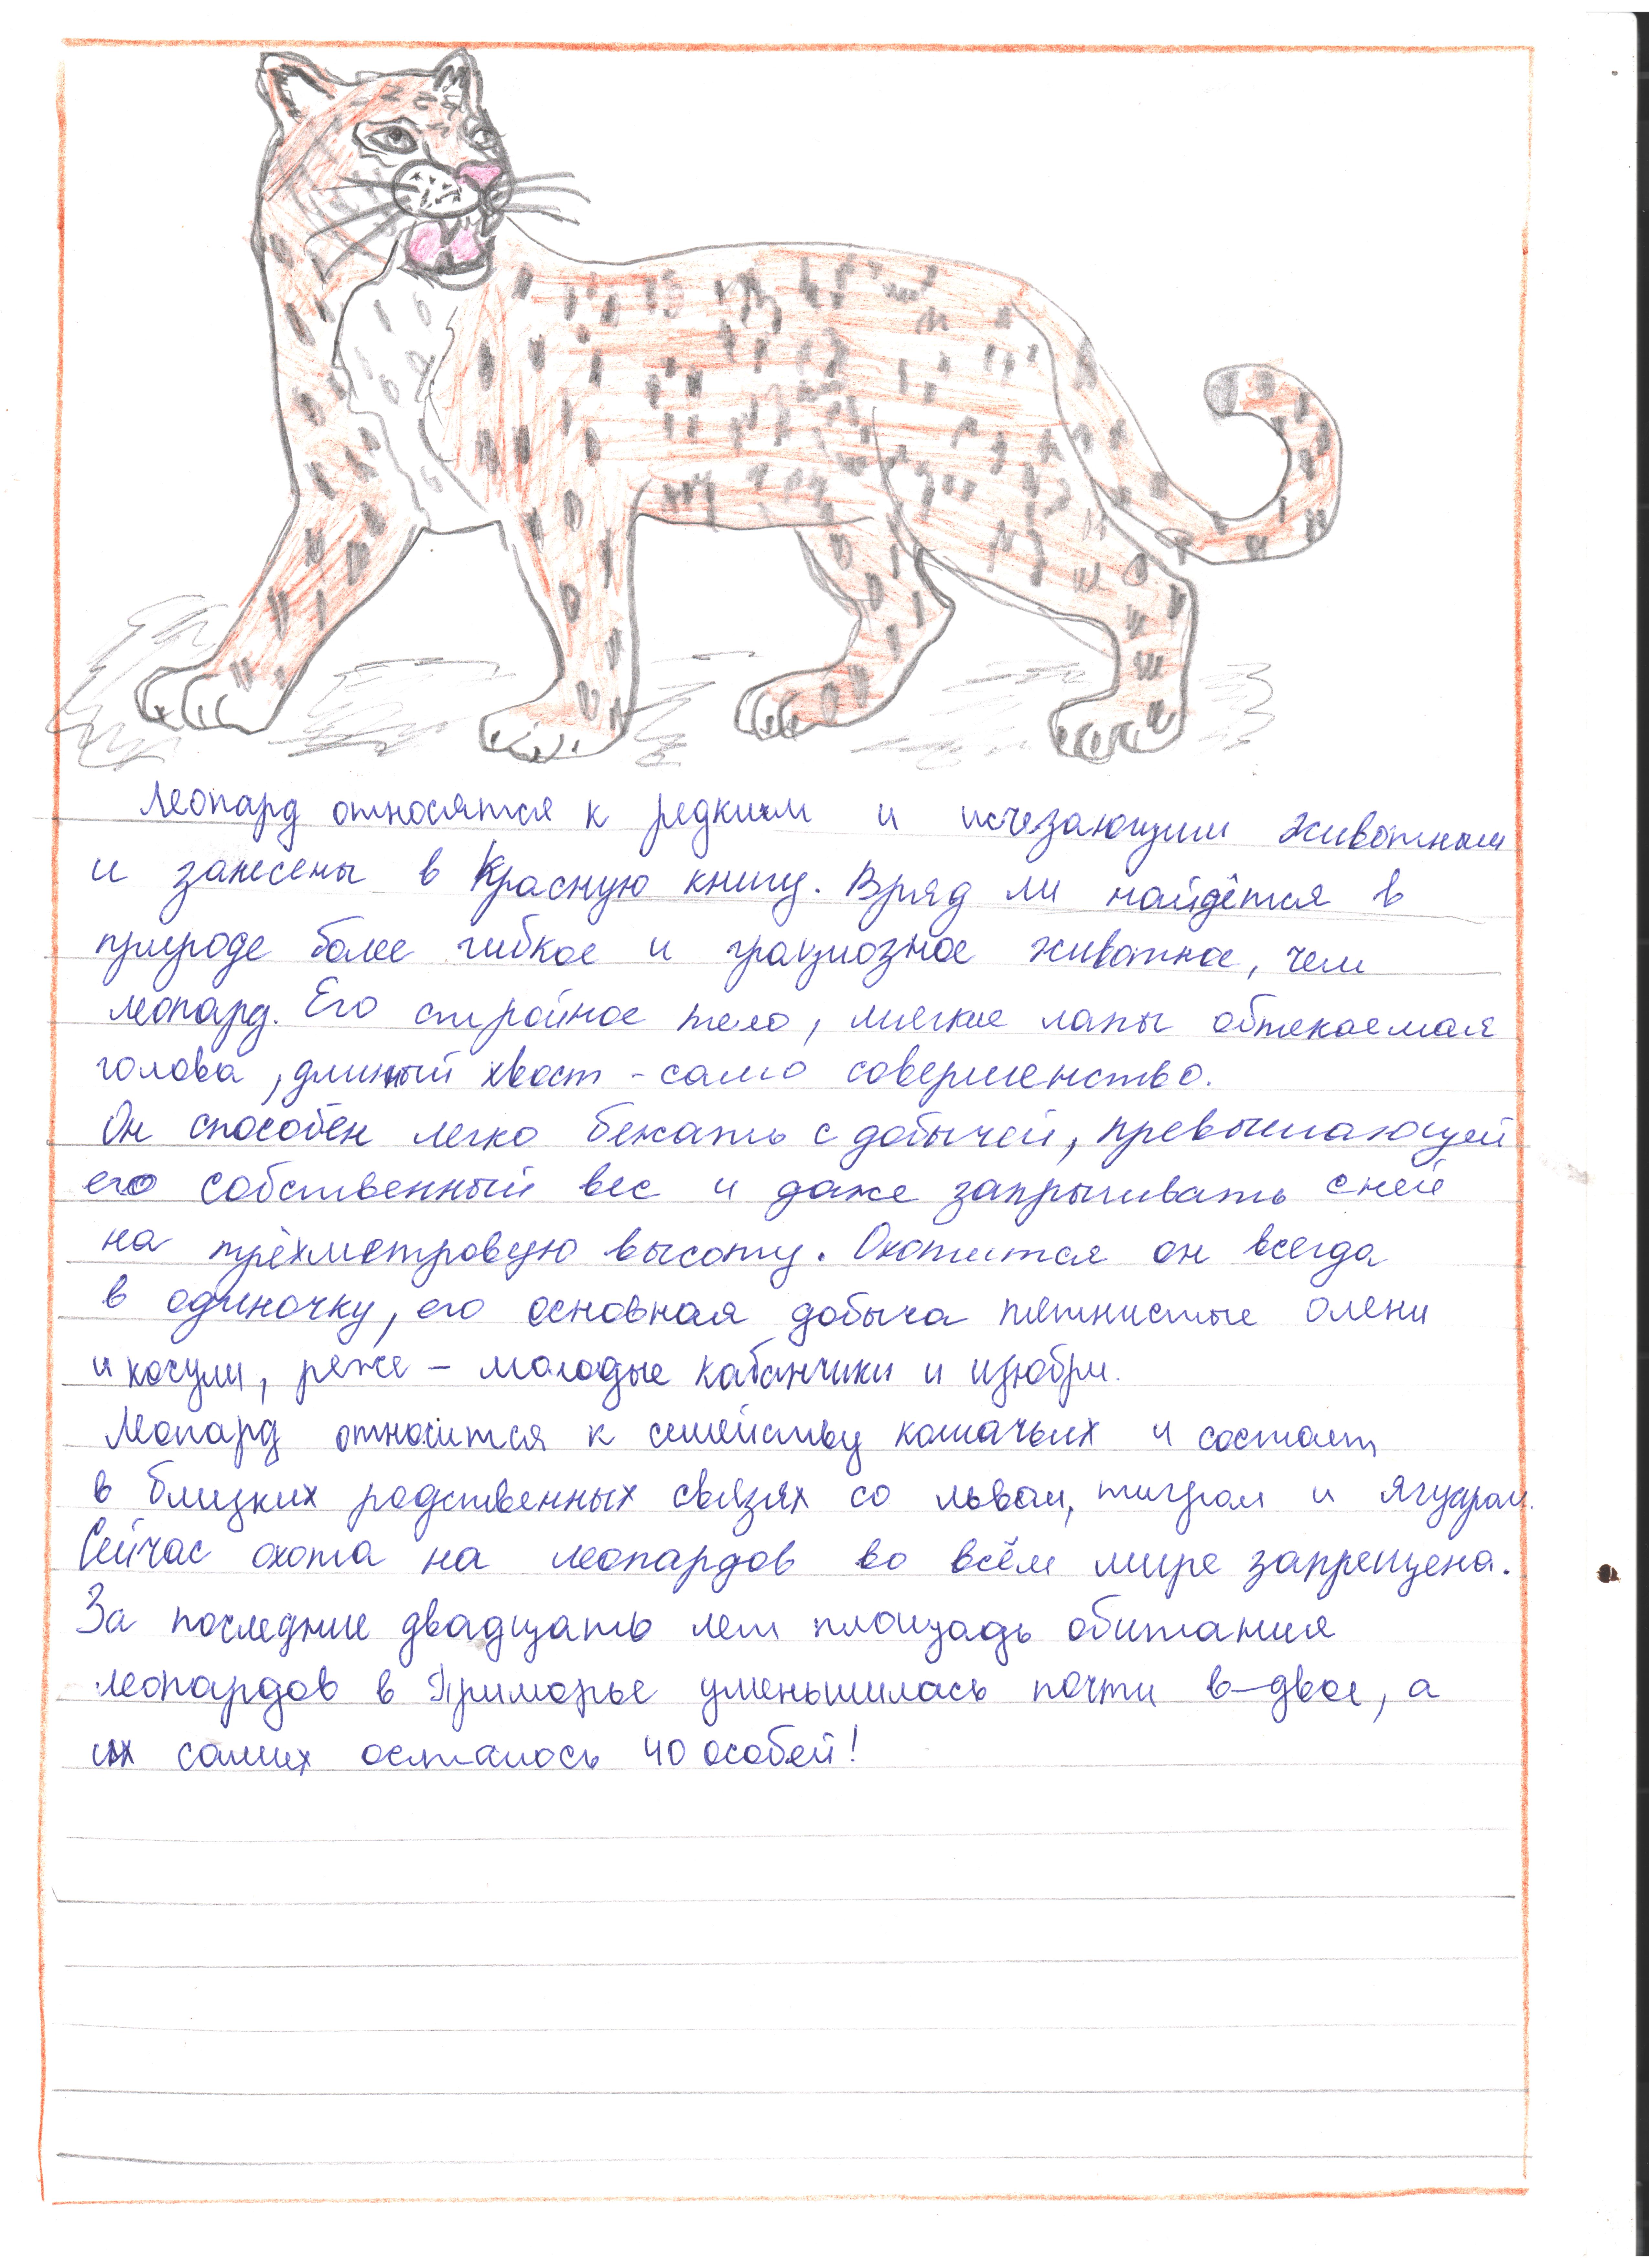 Леопард относятся к редким и исчезающим животным
и занесены в Красную книгу. Вряд ли найдётся в
природе более гибкое и грациозное животное, чем
леопард. Его стройное тело, мягкие лапы обтекаемая
голова, длинный хвост - само совершенство.
Он способен легко бежать с добычей, превышающей
его собственный вес и даже запрыгивать с ней
на трёхметровую высоту. Охотится он всегда
в одиночку, его основная добыча пятнистые олени
и косули, реже - молодые кабанчики и изюбри.
Леопард относится к семейству кошачьих и состоит
в близких родственных связях со львом, тигром и ягуаром.
Сейчас охота на леопардов во всём мире запрещена.
За последние двадцать лет площадь обитания
леопардов в Приморье уменьшилась почти в-двое, а
их самих осталось 40 особей!